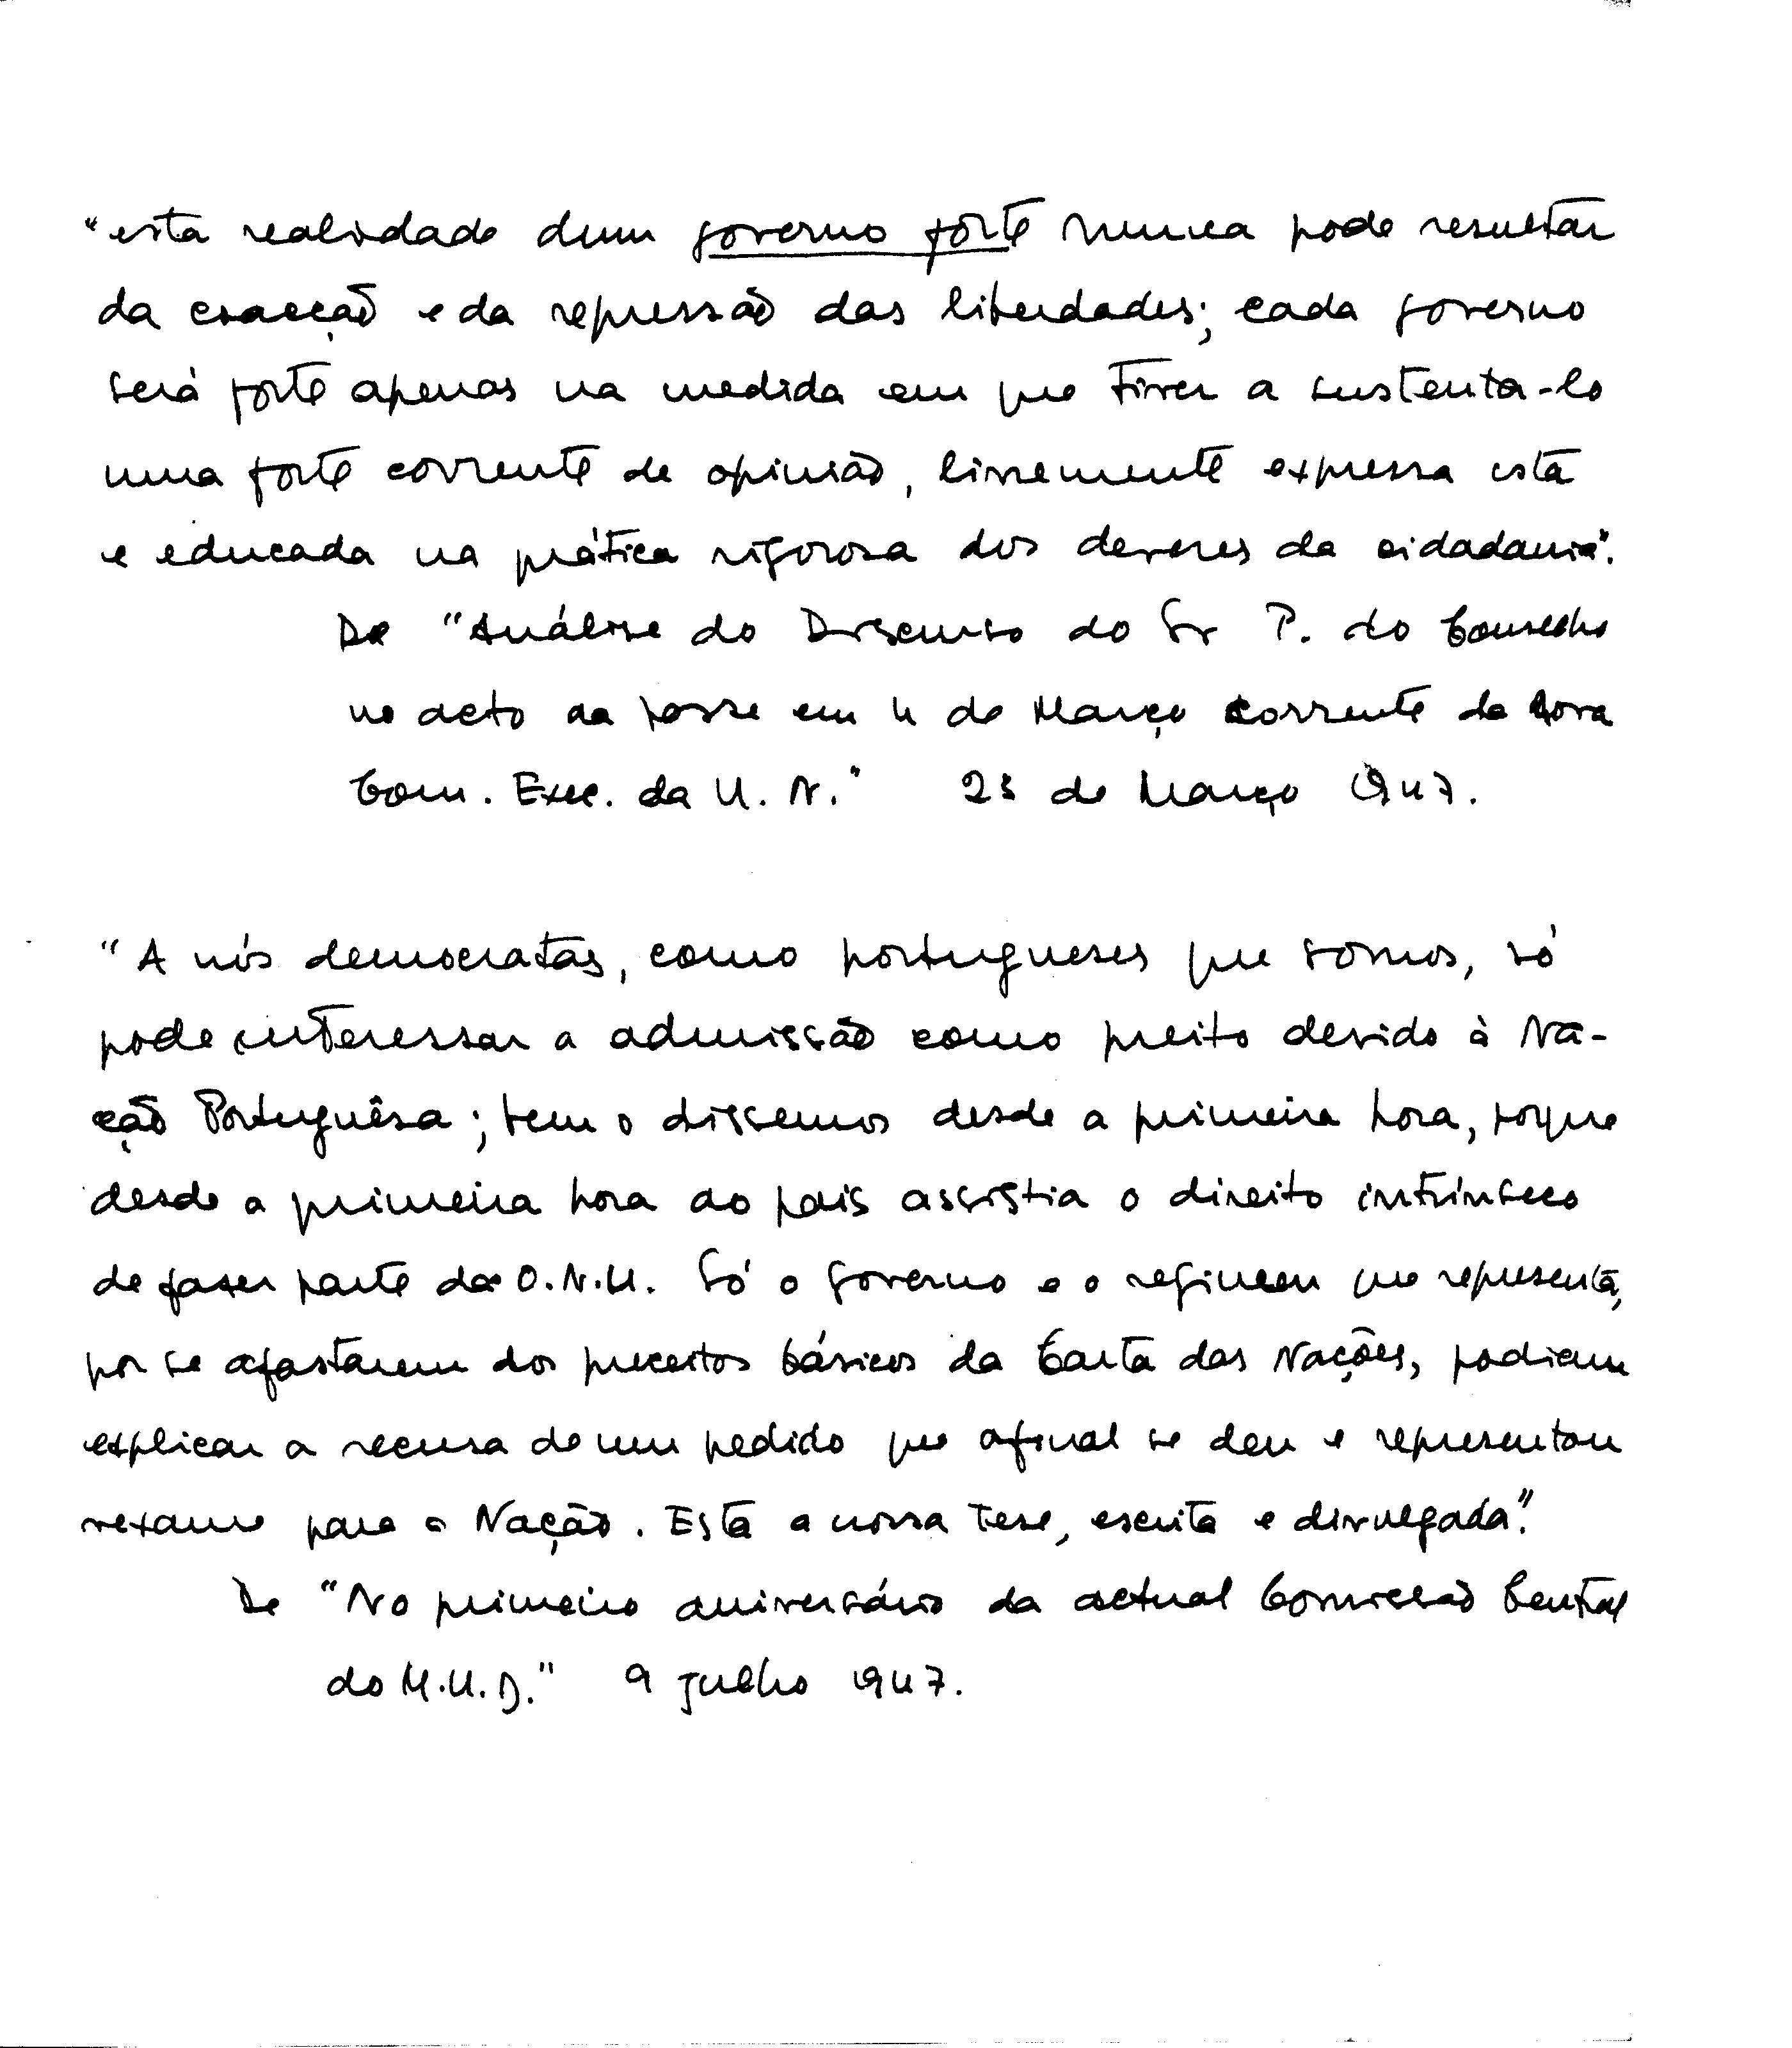 "esta realidade dum governo forte nunca pode resultar
da coacção e da repressão das liberdades; cada governo
será forte apenas na medida em que tiver a sustentá-lo
uma forte corrente de opinião, livremente expressa esta
e educada na prática rigorosa dos deveres da cidadania".
De "Análise do Discurso do Sr P. do Conselho
no acto da posse em 4 de Março corrente da nova
Com. Exec. da U. N." 23 de Março 1947.
"A nós democratas, como portugueses que somos, só
pode interessar a admissão como preito devido à Na-
ção Portuguêsa; bem o dissemos desde a primeira hora, porque
desde a primeira hora ao país assistia o direito intrínseco
de fazer parte da O.N.U. Só o governo e o regimen que representa,
por se afastarem dos preceitos básicos da Carta das Nações, podiam
explicar a recusa de um pedido que afinal se deu e representou
vexame para a Nação. Esta a nossa tese, escrita e divulgada".
De "No primeiro aniversário da actual Comissão Central
do M.U.D." 9 julho 1947.